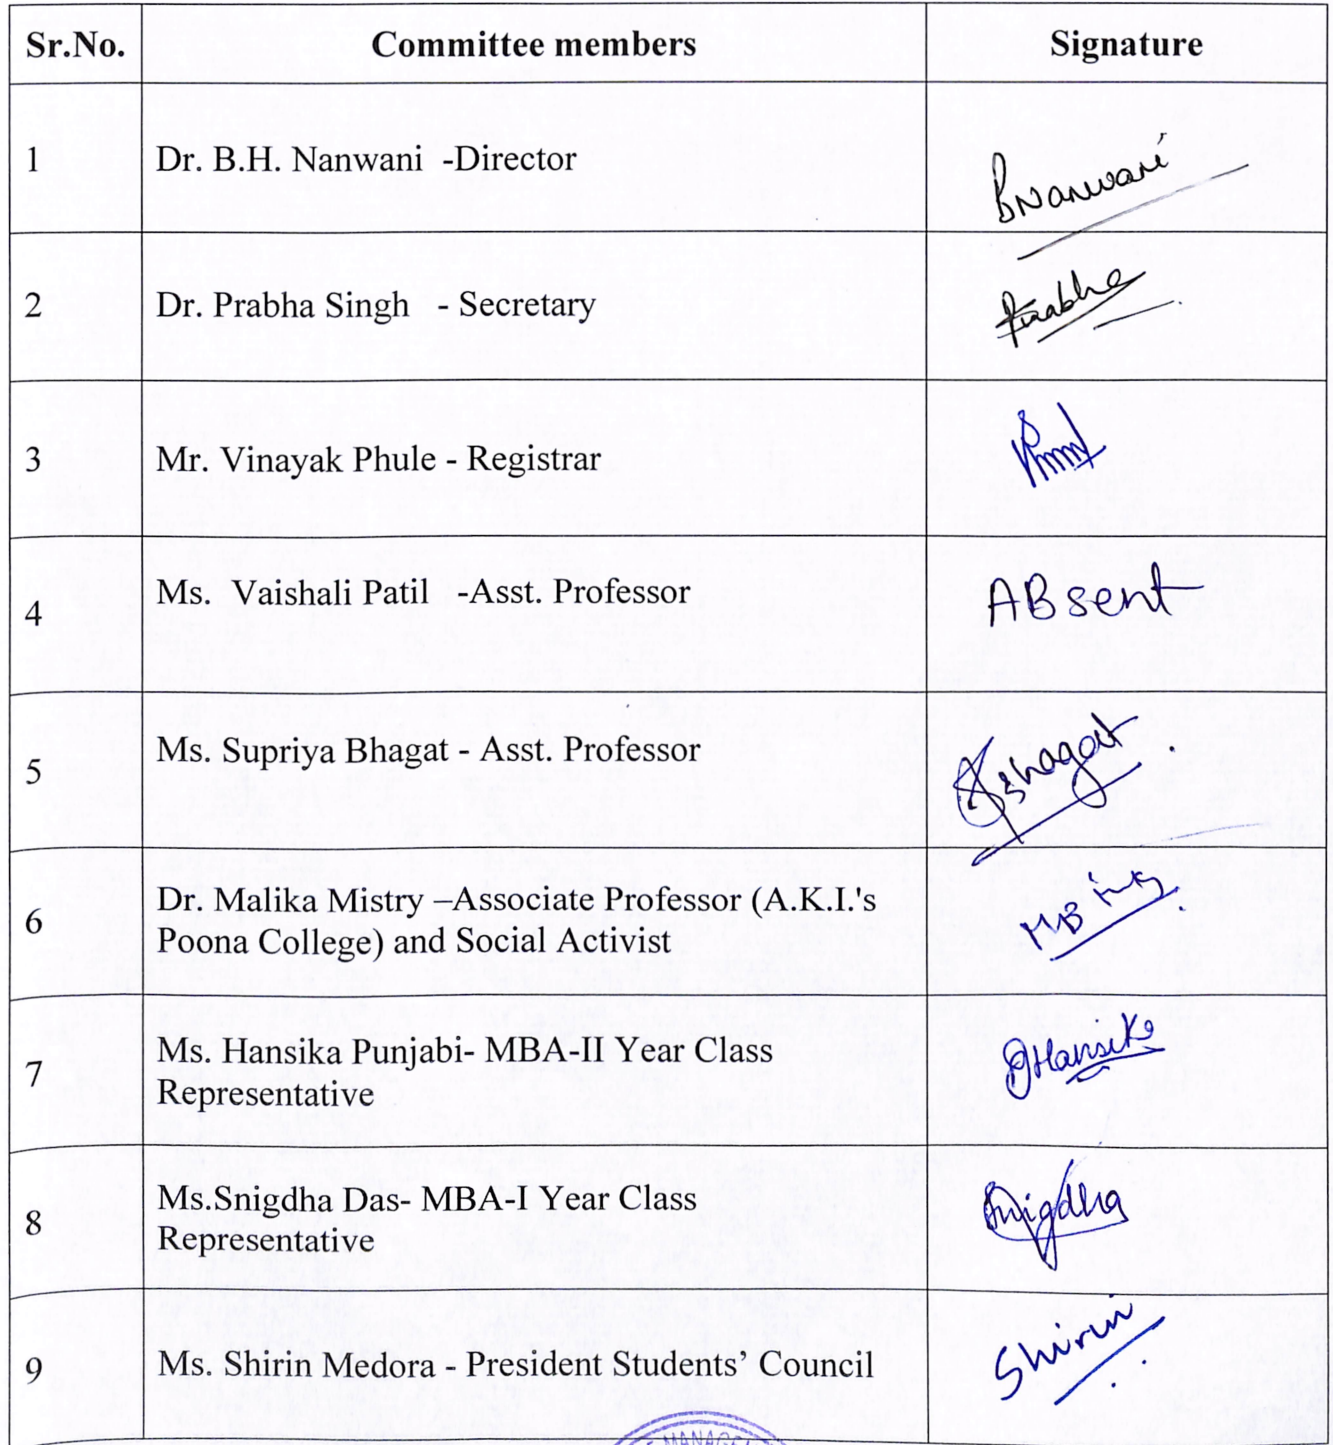 Sr.No. Committee members Signature
1 Dr. B.H. Nanwani -Director BNanwani
2 Dr. Prabha Singh - Secretary Prabha
3 Mr. Vinayak Phule - Registrar
4 Ms. Vaishali Patil -Asst. Professor ABsent
5 Ms. Supriya Bhagat - Asst. Professor SBhagat
6 Dr. Malika Mistry –Associate Professor (A.K.I.'s
Poona College) and Social Activist
7 Ms. Hansika Punjabi- MBA-II Year Class
Representative Hansika
8 Ms.Snigdha Das- MBA-I Year Class
Representative Snigdha
9 Ms. Shirin Medora - President Students’ Council Shirin